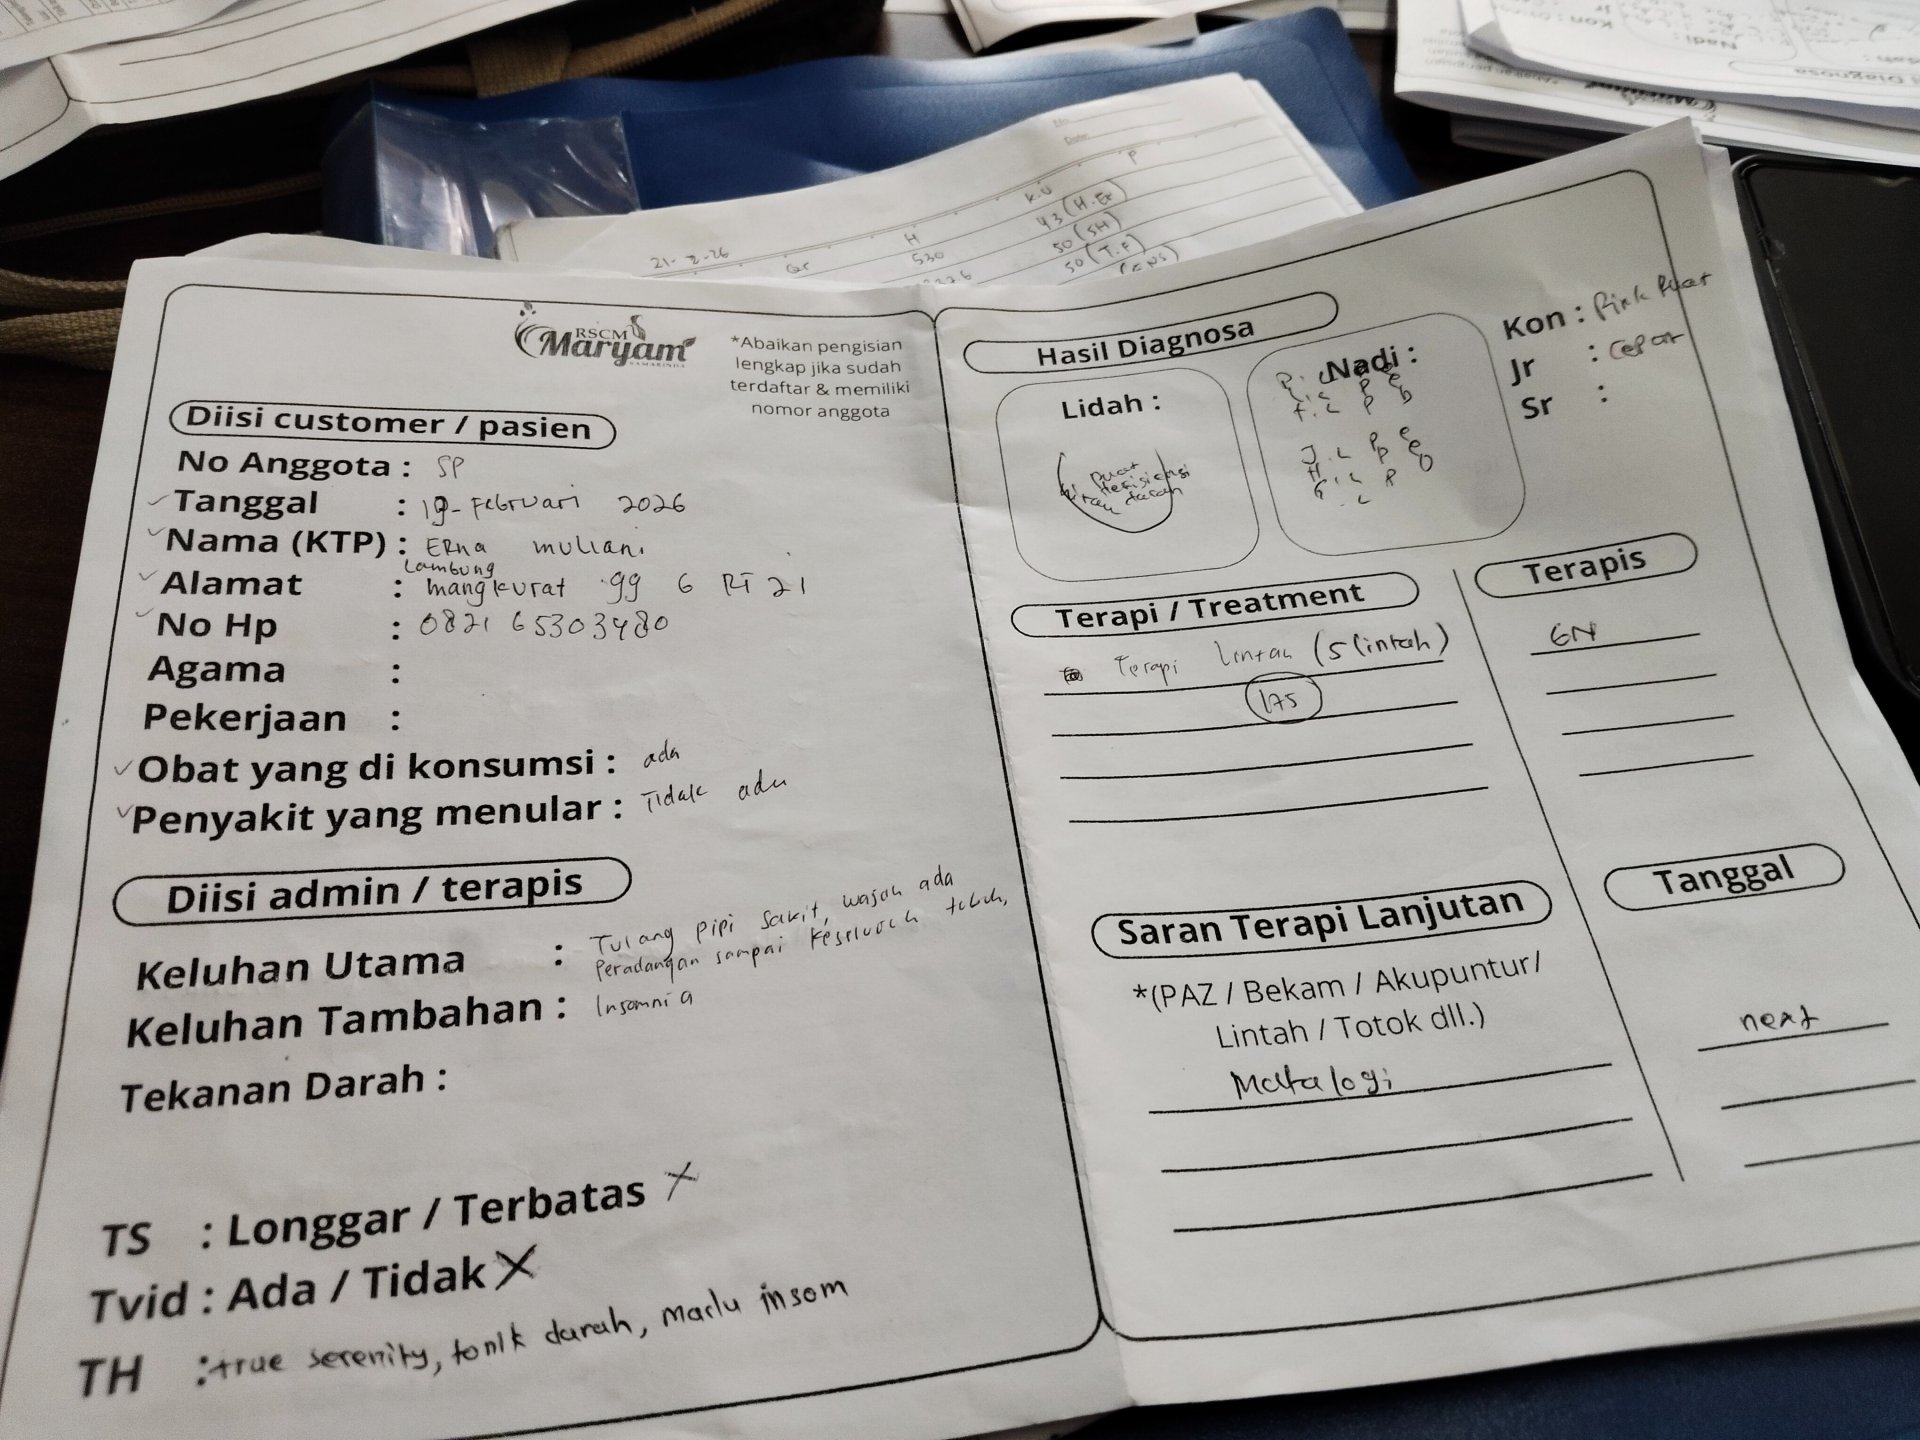 RSCM
Maryam
SAMARINDA
*Abaikan pengisian
lengkap jika sudah
terdaftar & memiliki
nomor anggota
Diisi customer / pasien
No Anggota : SP
Tanggal : 19-Februari 2026
Nama (KTP) : ERna muliani
Lambung
Alamat : mangkurat gg 6 RT 21
No Hp : 0821 65303480
Agama :
Pekerjaan :
Obat yang di konsumsi : ada
Penyakit yang menular : Tidak ada
Diisi admin / terapis
Keluhan Utama : Tulang pipi sakit, wajah ada
Peradangan sampai keseluruh tubuh,
Keluhan Tambahan : Insomnia
Tekanan Darah :
TS : Longgar / Terbatas X
Tvid : Ada / Tidak X
TH : true serenity, tonik darah, madu insom
Hasil Diagnosa
Lidah :
pucat
defisiensi
darah
Nadi :
Kon : Pink Pucat
Jr : cepat
Sr :
Terapi / Treatment
Terapi lintah (5 lintah)
175
Terapis
GN
Saran Terapi Lanjutan
*(PAZ / Bekam / Akupuntur/
Lintah / Totok dll.)
Matalogi
Tanggal
next
21-2-26
H
K.U
P
530
43 (H.Er)
50 (SH)
50 (T.F)